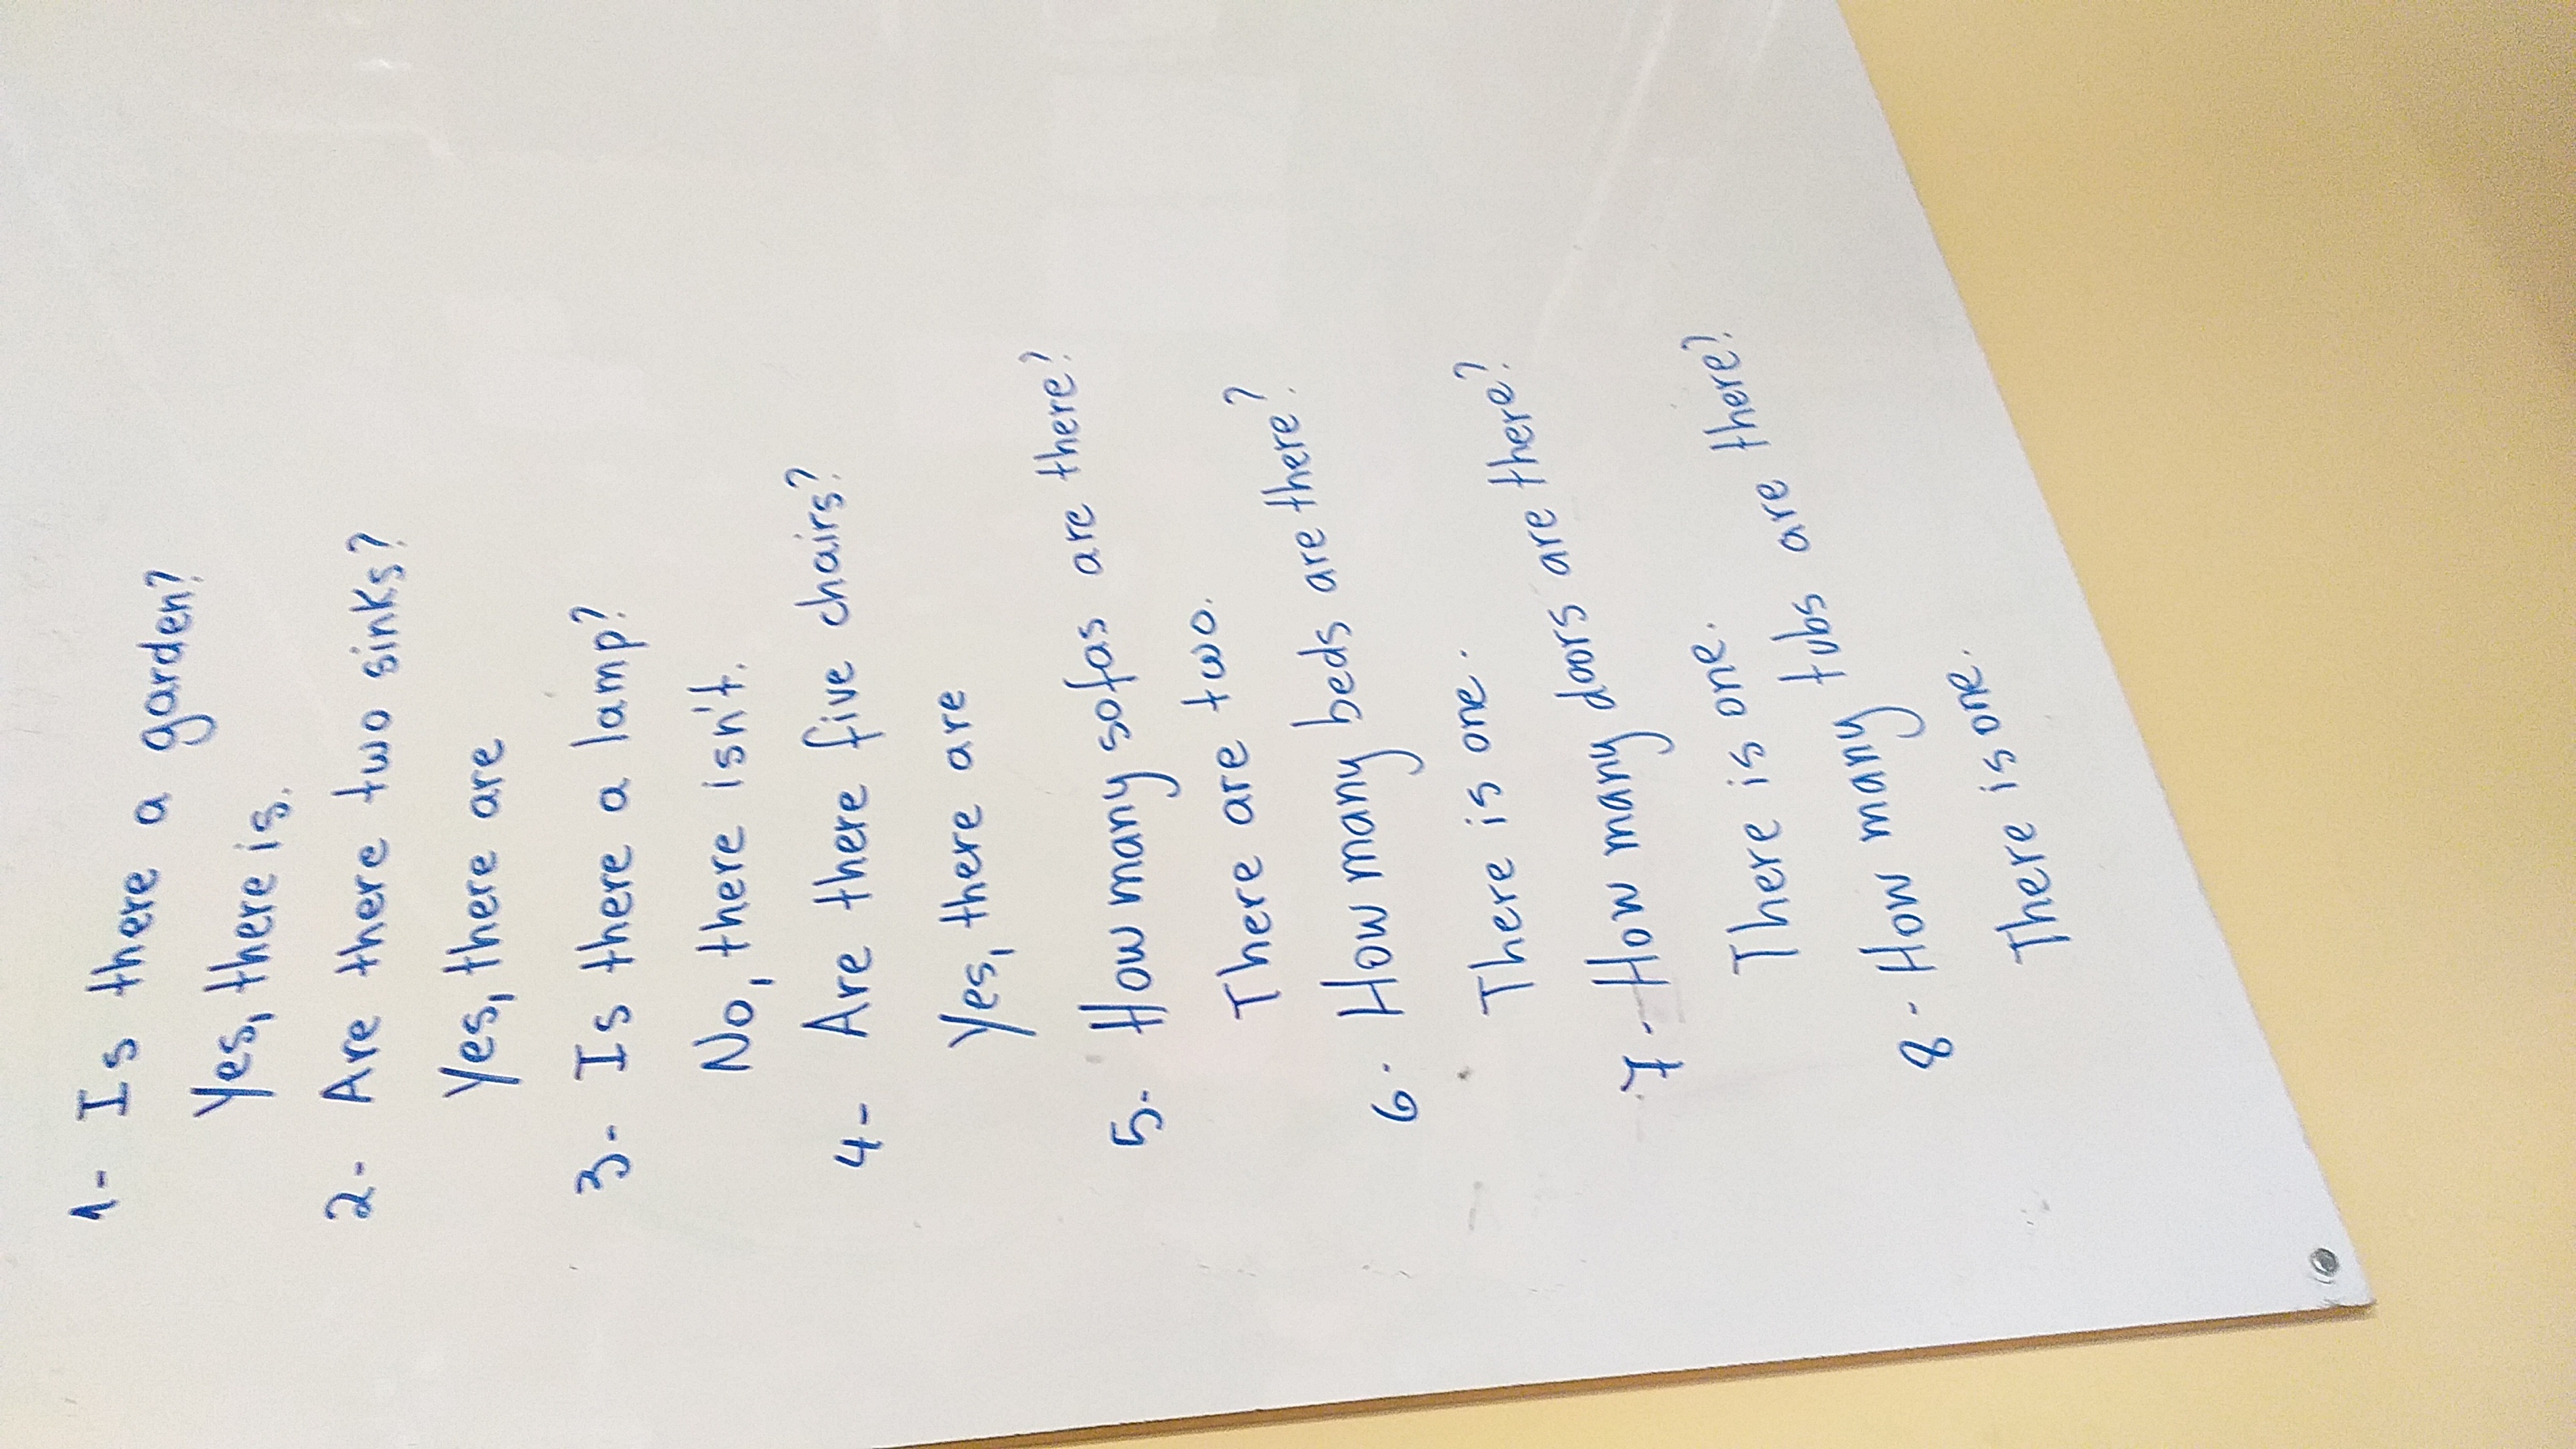 1- Is there a garden?
Yes, there is.
2- Are there two sinks?
Yes, there are
3- Is there a lamp?
No, there isn't.
4- Are there five chairs?
Yes, there are
5- How many sofas are there?
There are two.
6- How many beds are there?
There is one.
7- How many doors are there?
There is one.
8- How many tubs are there?
There is one.